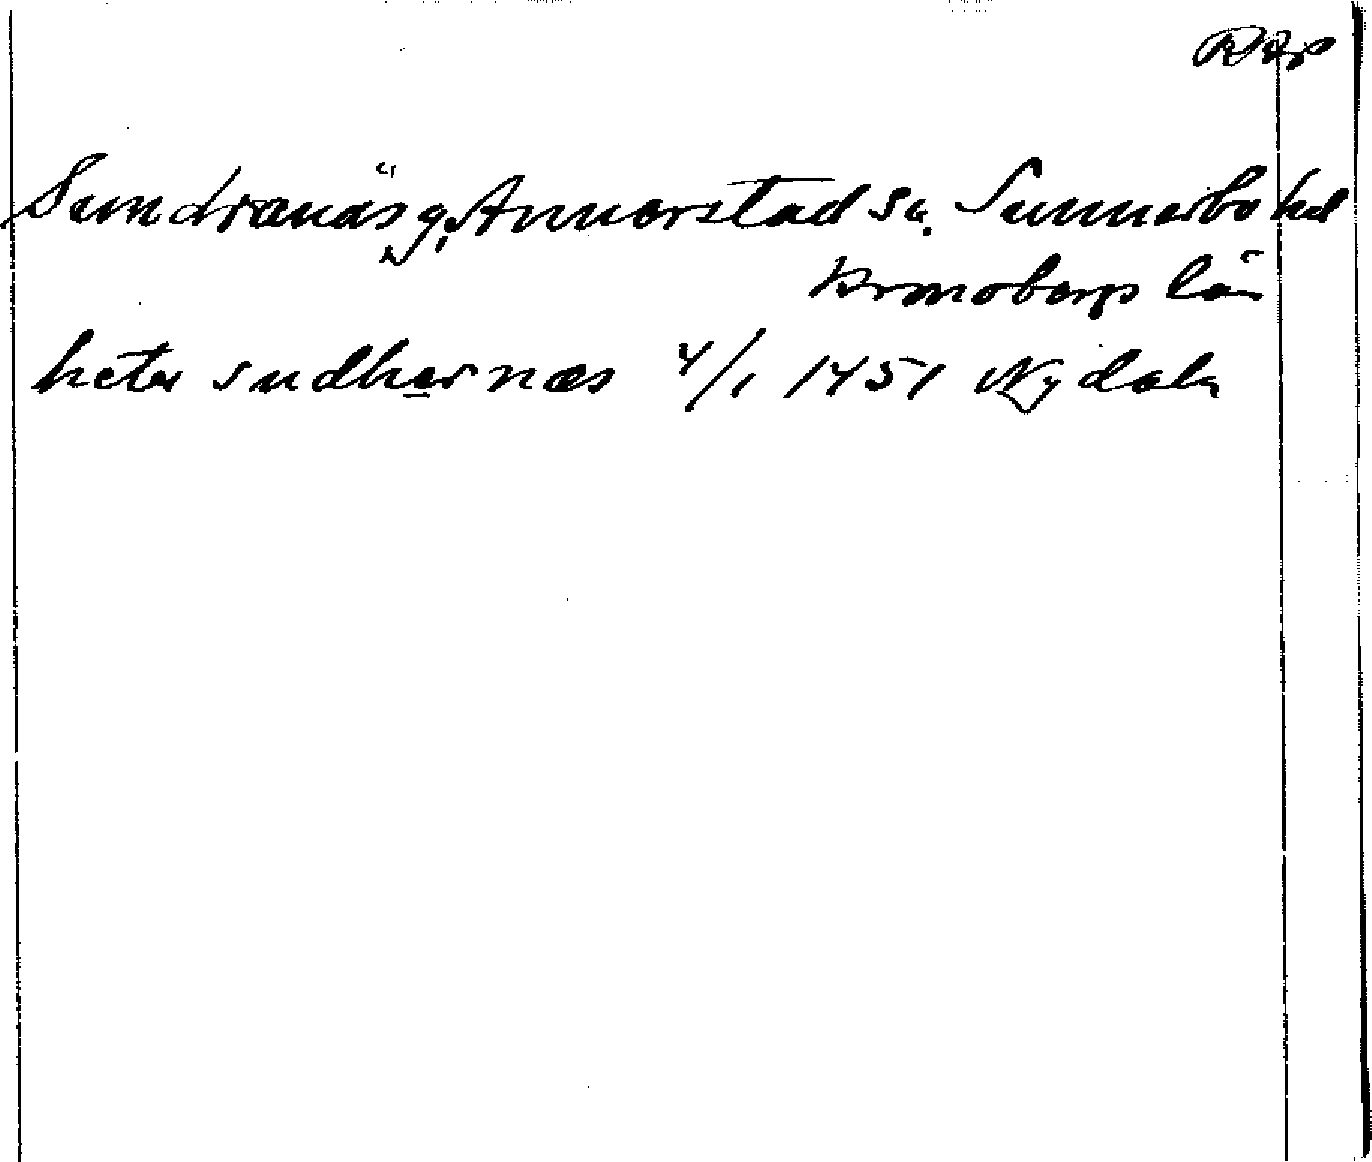 Sundranäs g, Annerstad sn. Sunnerbo hd
Kronobergs län
heter sudhernæs 4/1 1451 Nydala